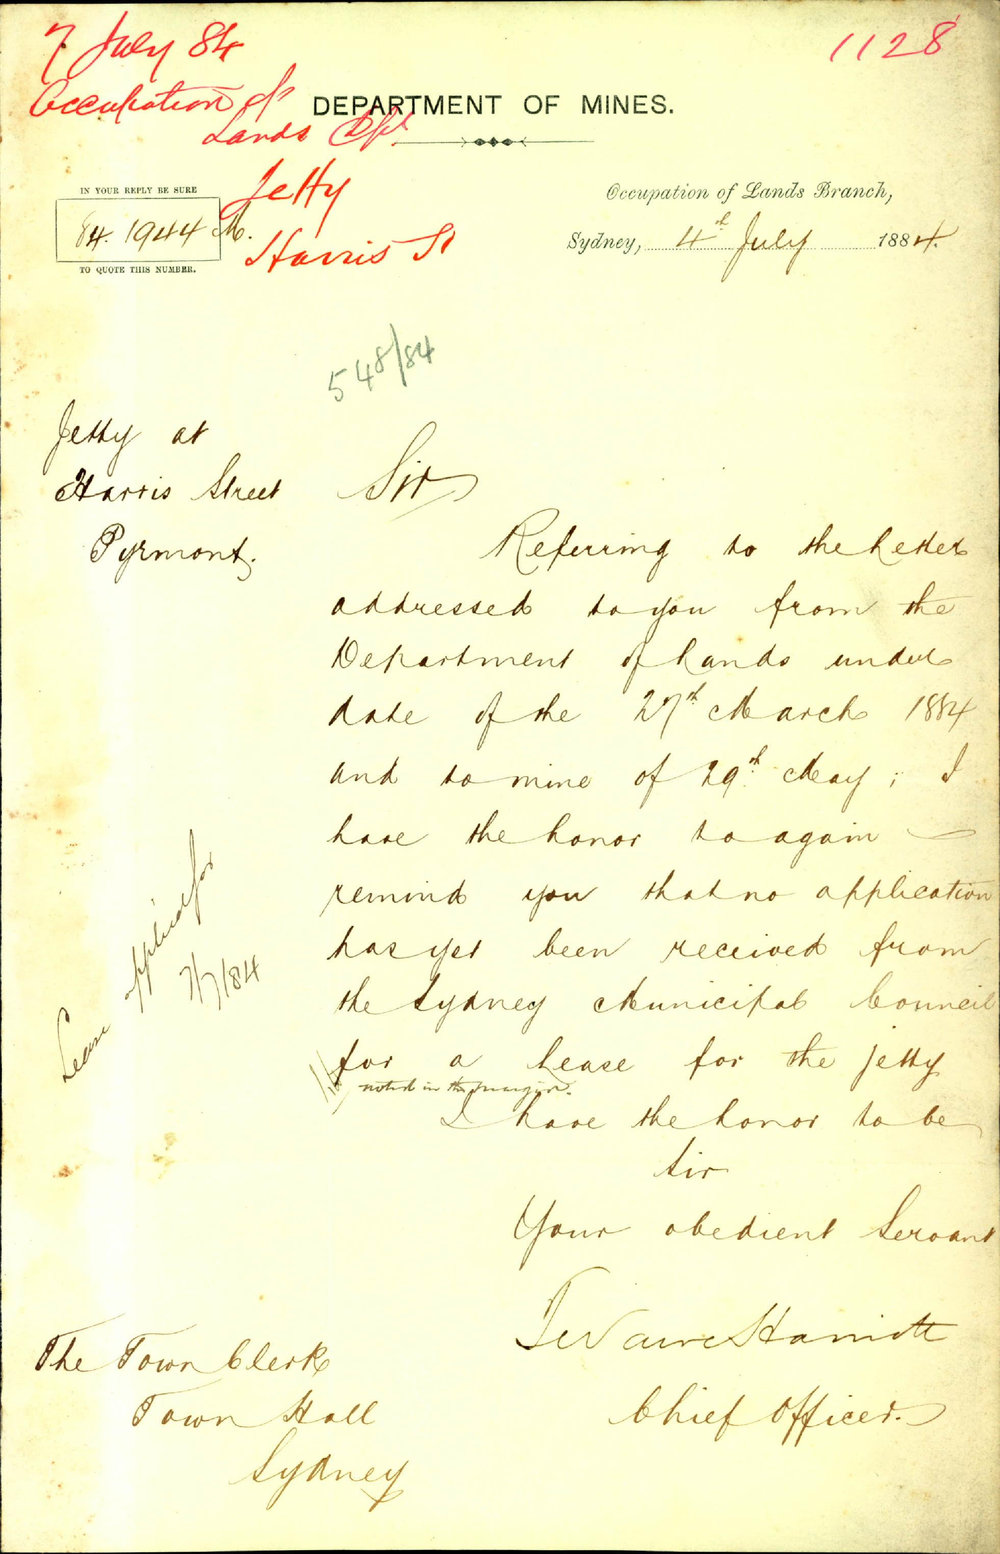 7 July 84
1128
Occupation of
Lands Dpt.
DEPARTMENT OF MINES.
Jetty
Harris St
IN YOUR REPLY BE SURE
84. 1944 M.
TO QUOTE THIS NUMBER.
Occupation of Lands Branch,
Sydney, 4th July 1884.
548/84
Jetty at
Harris Street
Pyrmont.
Sir
Referring to the letter
addressed to you from the
Department of Lands under
date of the 27th March 1884
and to mine of 29th May; I
have the honor to again
remind you that no application
has yet been received from
the Sydney Municipal Council
for a Lease for the jetty
noted in the margin.
I have the honor to be
Sir
Your obedient Servant
Chief Officer.
Lease applied for
7/7/84
The Town Clerk
Town Hall
Sydney